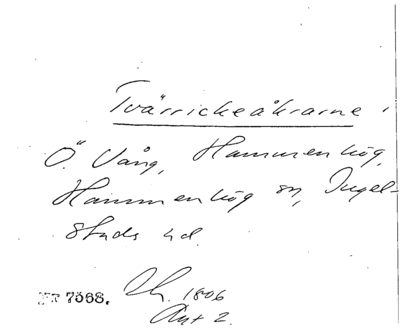 Tvärrickeåkrarne
Ö. Vång, Hammenhög,
Hammenhög sn, Ingel-
stads hd.
7568. 1806
Akt 2.